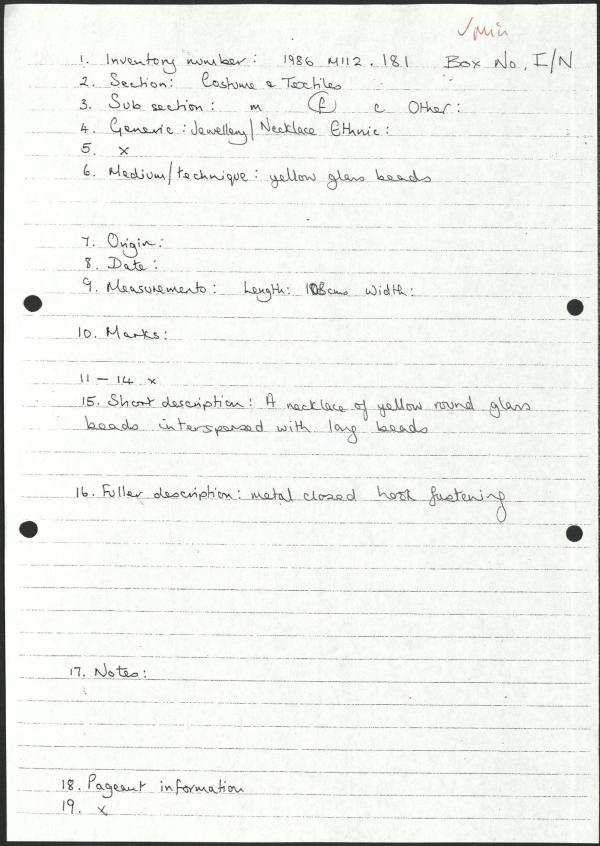 1. Inventory number: 1986 M112.181 Box No. I/N
2. Section: Costume & Textiles
3. Sub section: m f c Other:
4. Generic: Jewellery/Necklace Ethnic:
5. x
6. Medium/technique: yellow glass beads
7. Origin:
8. Date:
9. Measurements: Length: 108cms Width:
10. Marks:
11 - 14 x
15. Short description: A necklace of yellow round glass
beads interspersed with long beads
16. Fuller description: metal closed hook fastening
17. Notes:
18. Pageant information
19. x